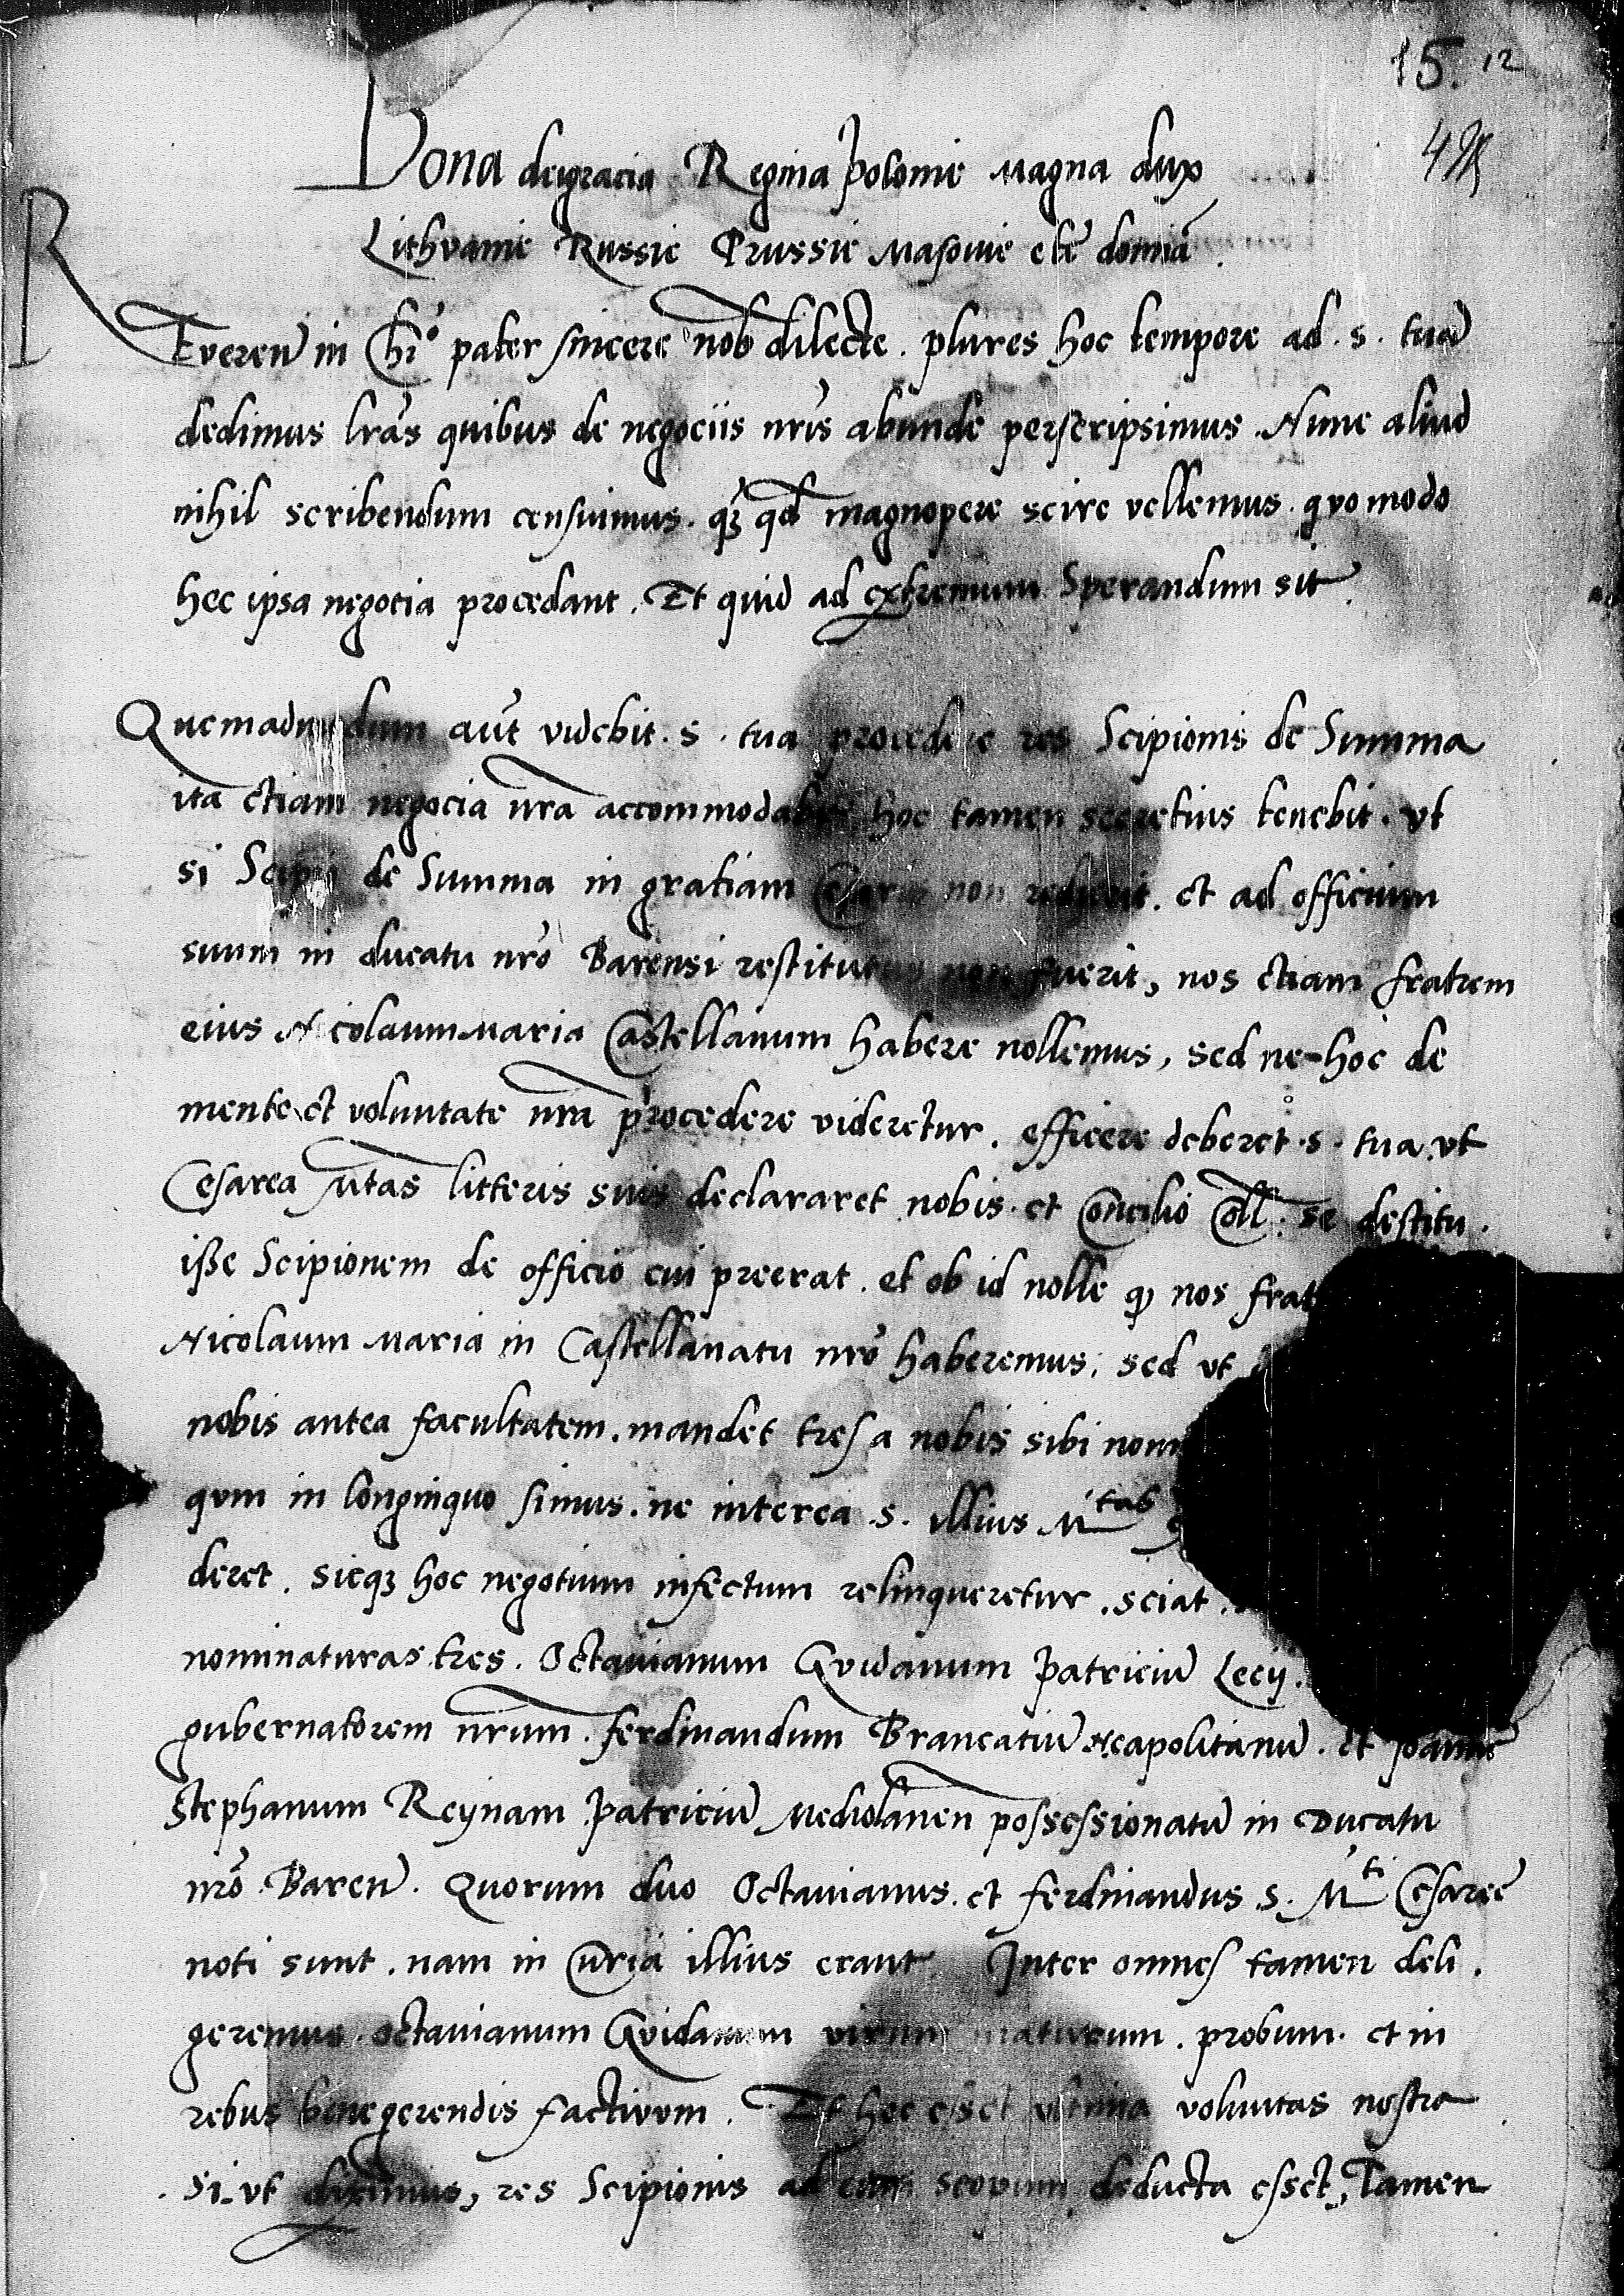 15. 12
Bona dei gracia Regina Polonie Magna dux
Lithvanie Russie Prussie Masovie etc domina.
Reveren in Chro pater sincere nob dilecte. plures hoc tempore ad. s. tua
dedimus lras quibus de negociis nris abunde perscripsimus. Nunc aliud
nihil scribendum censuimus. qz qd magnopere scire vellemus. quomodo
hec ipsa negotia procedant. Et quid ad extremum Sperandum sit.
Quemadmodum aut videbit. s. tua procedere res Scipionis de Summa
ita etiam negocia nra accommodabit hoc tamen secretius tenebit. vt
si Scipio de Summa in gratiam Cesaris non redierit. et ad officium
suum in ducatu nro Barensi restitutus non fuerit, nos etiam fratrem
eius Nicolaum Maria Castellanum habere nollemus, sed ne hoc de
mente et voluntate nra procedere videretur. efficere deberet. s. tua. vt
Cesarea Mtas litteris suis declararet nobis. et Concilio Coll. se destitu.
isse Scipionem de officio cui preerat. et ob id nolle q nos frat
Nicolaum Maria in Castellanatu nro haberemus. sed vt
nobis antea facultatem. mandet tres a nobis sibi nom
qum in longinquo simus. ne interea. s. illius Mtas
deret. sicqz hoc negotium infectum relinqueretur. sciat.
nominaturas tres. Octavianum Gvidanum Patriciu Lecij.
gubernatorem nrum. ferdinandum Brancatiu Neapolitanu. et Joanne
Stephanum Reynam Patriciu Mediolanen possessionatu in Ducatu
nro Baren. Quorum duo Octavianus. et ferdinandus s. Mti Cesaree
noti sunt. nam in Curia illius erant. Inter omnes tamen deli.
geremus. Octavianum Gvidanum virum maturum. probum. et in
rebus bene gerendis factivum. Et hec esset vltima voluntas nostra
Si. vt diximus, res Scipionis ad eum scopum deducta esset, Tamen